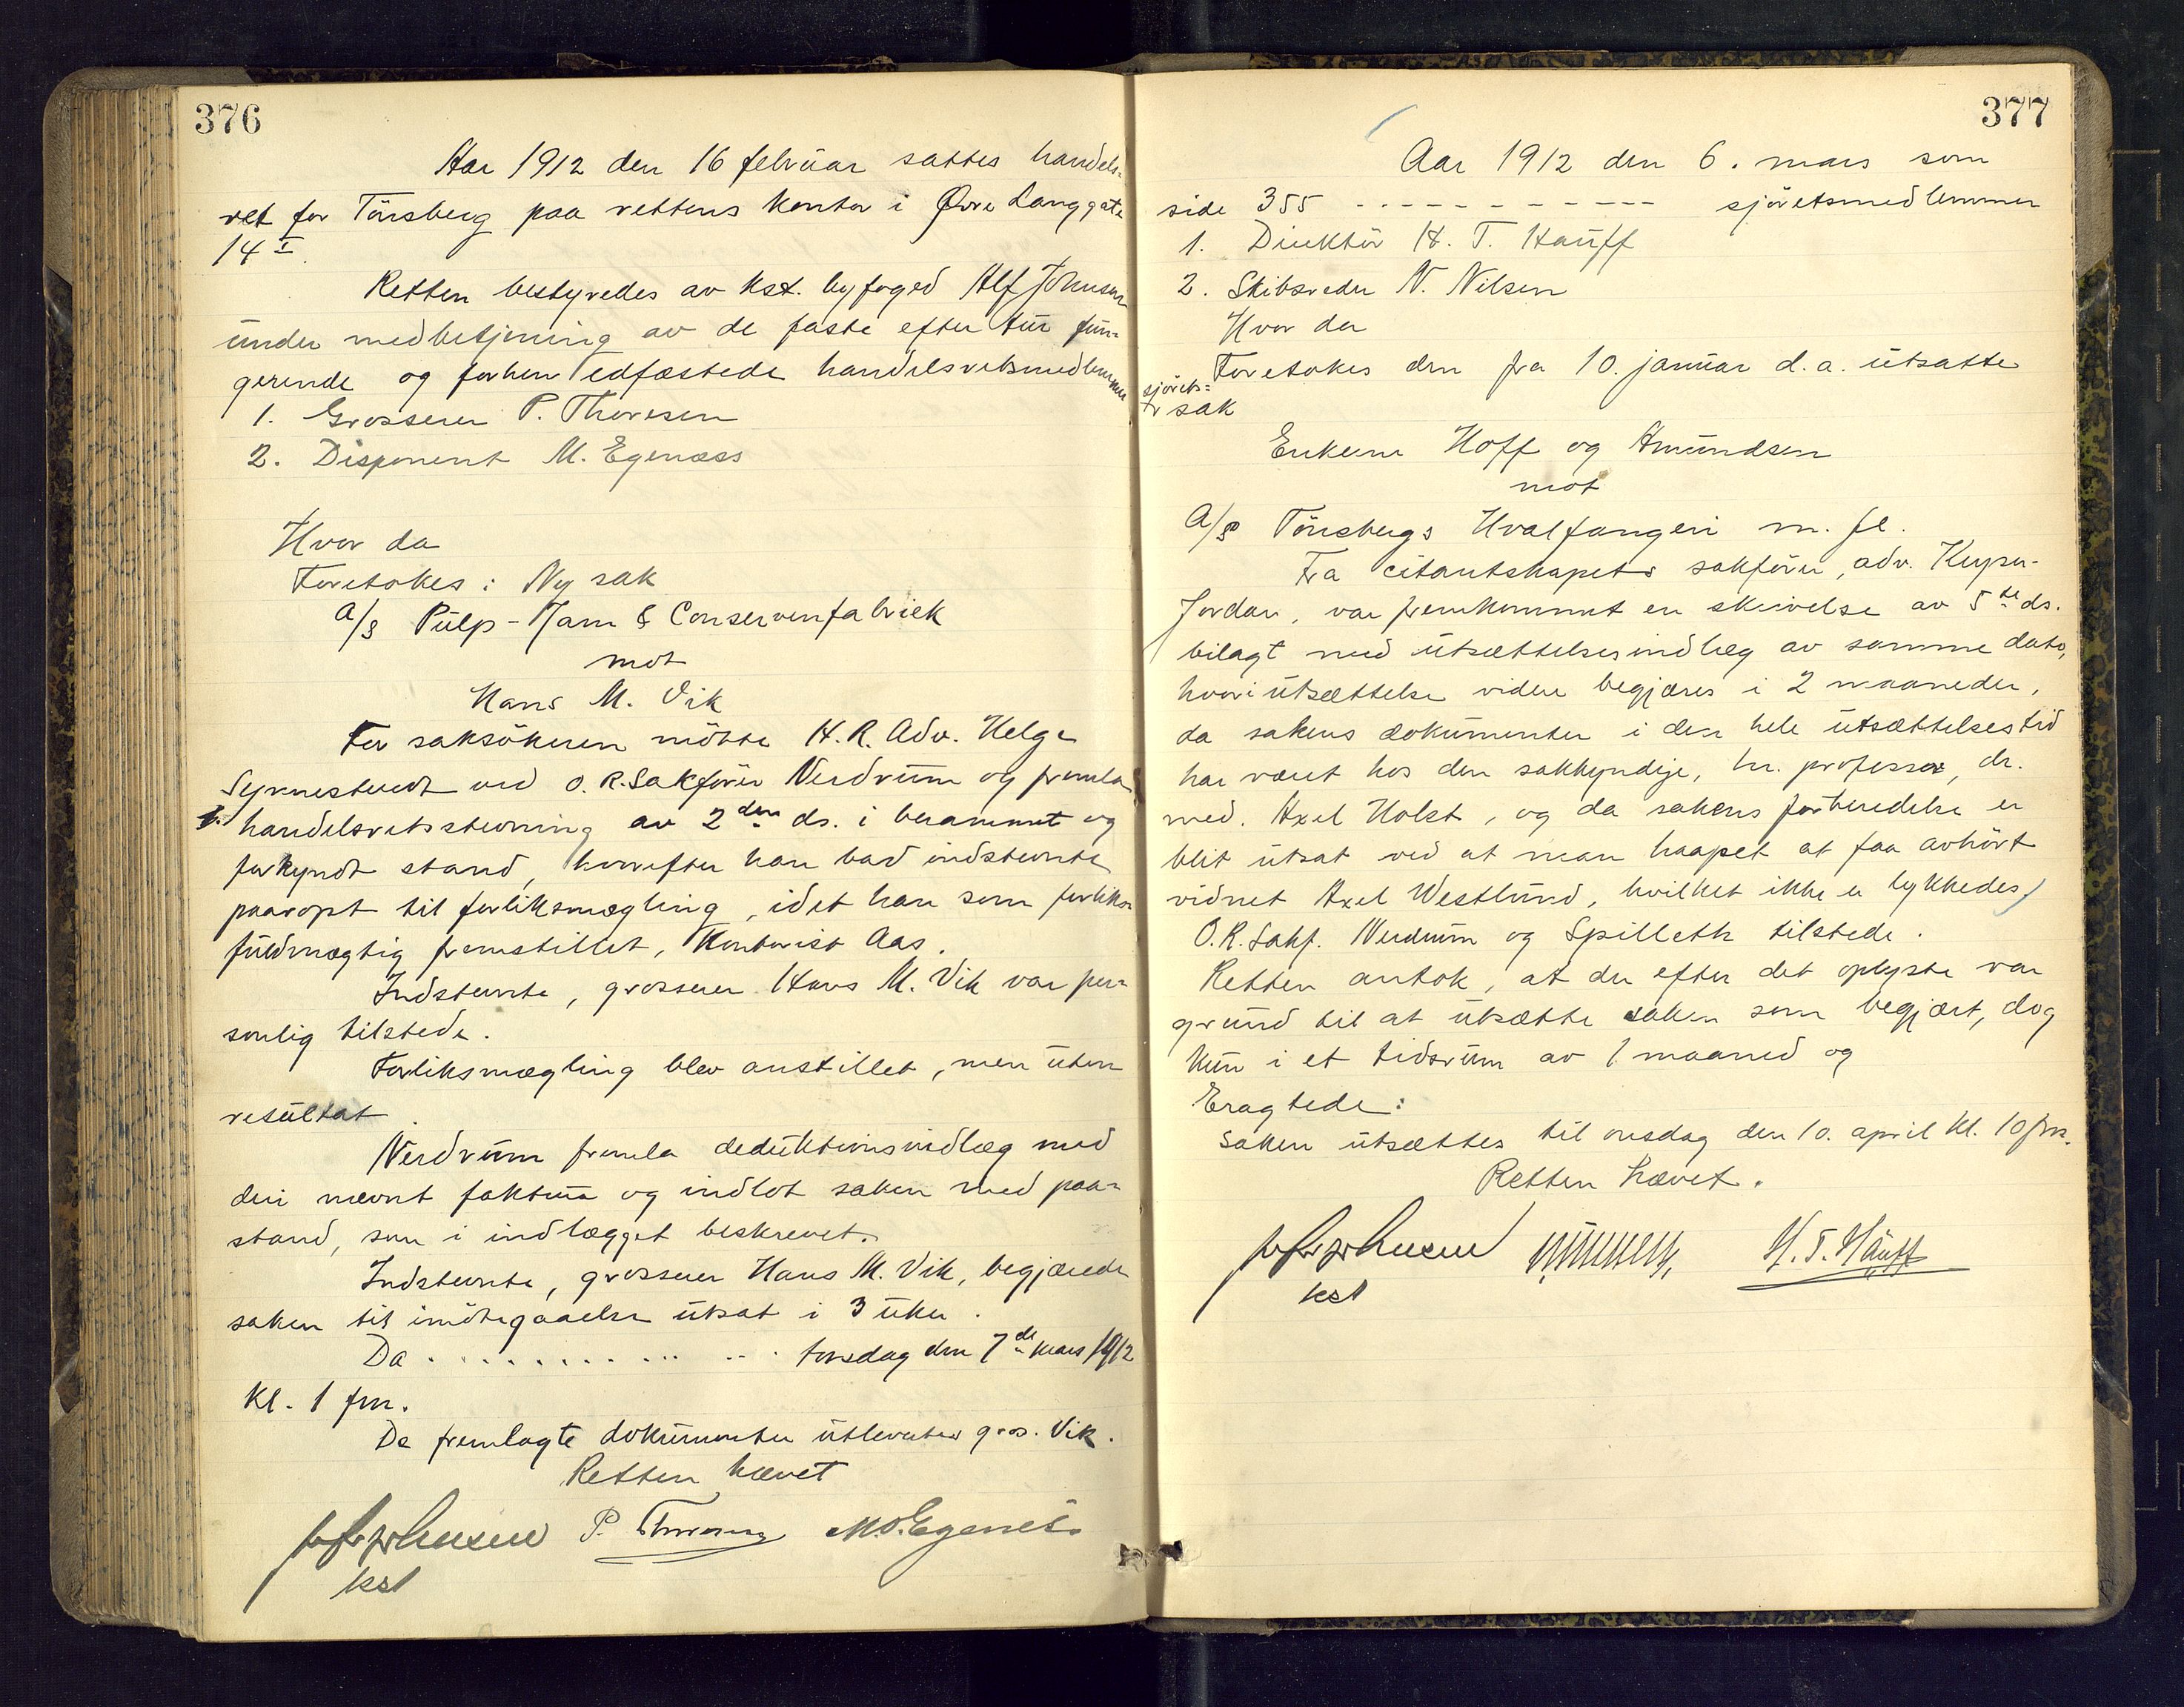 376
Aar 1912 den 16 februar sattes handels-
ret for Tönsberg paa rettens kontor i Øvre Langgate
14 I.
Retten bestyredes av kst. byfoged Alf Johnsen
under medbetjening av de faste efter tur fun-
gerende og forhen edfæstede handelsretsmedlemmer
1. Grosserer P. Thoresen
2. Disponent M. Egenæss
Hvor da
Foretokes: Ny sak
A/S Pulp-Jam & Conservenfabriek
mot
Hans M. Vik
For saksökeren mötte H.R. Adv. Helge
ved O.R. Sakförer Nerdrum og fremla
handelsretsstevning av 2den ds. i berammet og
forkyndt stand, hvorefter han bad indstevnte
paaropt til forliksmægling, idet han som forliks-
fuldmægtig fremstillet, Kontorist Aas.
Indstevnte, grosserer Hans M. Vik var per-
sonlig tilstede.
Forliksmægling blev anstillet, men uten
resultat.
Nerdrum fremla deduktionsindlæg med
deri nævnt faktura og indlot saken med paa-
stand, som i indlægget beskrevet.
Indstevnte, grosserer Hans M. Vik, begjærede
saken til imötegaaelse utsat i 3 uker.
Da . . . . . . . . . . . . . . torsdag den 7de mars 1912
Kl. 1 fm.
De fremlagte dokumenter utlevertes gros. Vik.
Retten hævet
Alf Johnsen P. Thoresen M.O. Egenes.
kst
377
Aar 1912 den 6. mars som
side 355 - - - - - - - - - - - sjöretsmedlemmer
1. Direktör H. T. Hauff
2. Skibsreder N. Nilsen
Hvor da
Foretokes den fra 10. januar d.a. utsatte
sjörets-
sak
Enkerne Hoff og Amundsen
mot
A/S Tönsbergs Hvalfangeri m. fl.
Fra citantskapets sakförer, adv. Keyser-
Jordan, var fremkommet en skrivelse av 5te ds.
bilagt med utsættelsesindlæg av samme dato,
hvori utsættelse videre begjæres i 2 maaneder,
da sakens dokumenter i den hele utsættelsestid
har været hos den sakkyndige, hr. professor, dr.
med. Axel Holst, og da sakens forberedelse er
blit utsat ved at man haapet at faa avhört
vidnet Axel Westlund, hvilket ikke er lykkedes
O.R. Sakf. Nerdrum og Spilleth tilstede.
Retten antok, at der efter det oplyste var
grund til at utsætte saken som begjært, dog
kun i et tidsrum av 1 maaned og
Eragtede:
Saken utsættes til onsdag den 10. april kl. 10 fm.
Retten hævet.
Alf Johnsen H. T. Hauff
kst